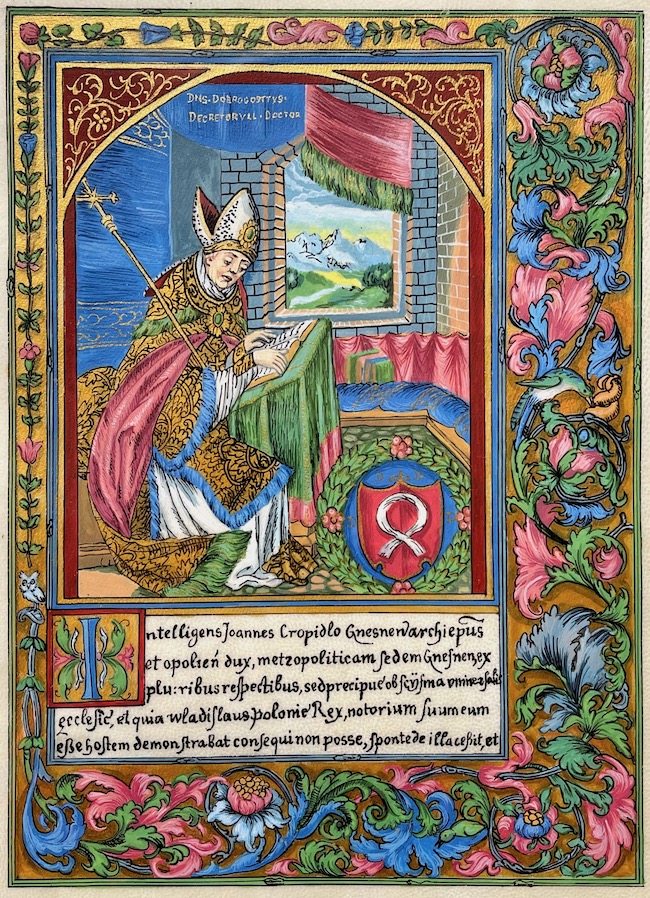 DNS·DOBROGOSTIVS·
DECRETORVM·DOCTOR
Intelligens Joannes Cropidlo Gnesneñ archiepũs
et opolień dux, metropoliticam sedem Gnesnen, ex
plu:ribus respectibus, sed precipue ob scysma vniuersalis
ecclesie, et quia wladislaus polonie Rex, notorium suum eum
eße hostem demonstrabat consequi non posse, sponte de illa ceßit, et